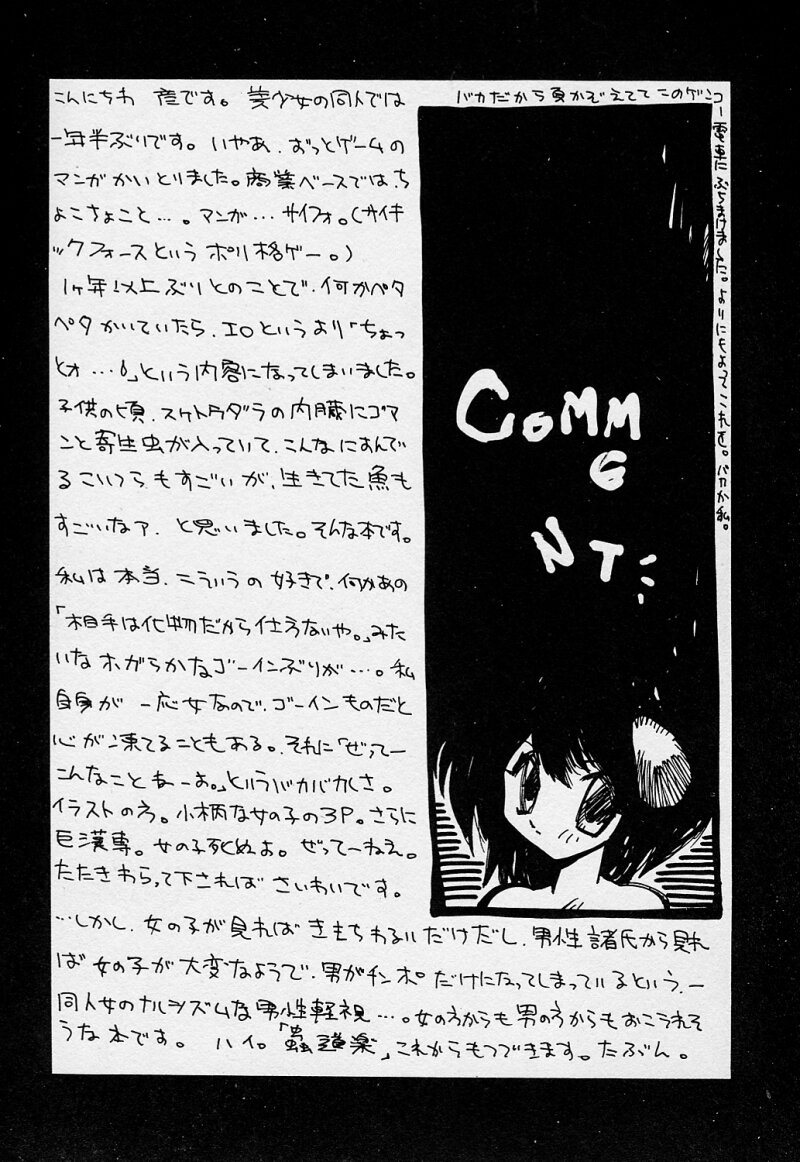 こんにちわ 彦です。美少女の同人では
一年半ぶりです。いやあ、ずっとゲームの
マンガかいとりました。商業ベースでは、ち
ょこちょこと…。マンガ…サイフォ。(サイキ
ックフォースという ポリ格ゲー。)
1ヶ年以上ぶりとのことで、何かペタ
ペタかいていたら、エロというより「ちょっ
とォ…6」という内容になってしまいました。
子供の頃、スケトウダラの内臓にゴマ
ンと寄生虫が入っていて、こんなに
るこいつらもすごいが、生きてた魚も
すごいなァ、と思いました。そんな本です。
私は本当、こういうの好きで、何かあの
「相手は化物だから仕方ないや。」みた
いなホガらかなゴーインぶりが…。私
自身が 一応女なので、ゴーインものだと
心が凍てることもある。それに「ぜってー
こんなことねーよ。」というバカバカしさ。
イラストの方。小柄な女の子の3P。さらに
巨漢専。女の子死ぬよ。ぜってーねえ。
たたきわらって下されば さいわいです。
…しかし、女の子が見れば きもちわるいだけだし、男性諸氏から見れ
ば 女の子が大変なようで、男がチンポだけになってしまっているという、一
同人女のナルシズムな男性軽視…。女の方からも男の方からもおこられそ
うな本です。 ハイ。「蟲道楽」これからもつづきます。たぶん。
バカだから頁かぞえてて このゲンコ
ー電車に ぶちまけました。よりにもよって これを。バカか私。
COMM
E
NT